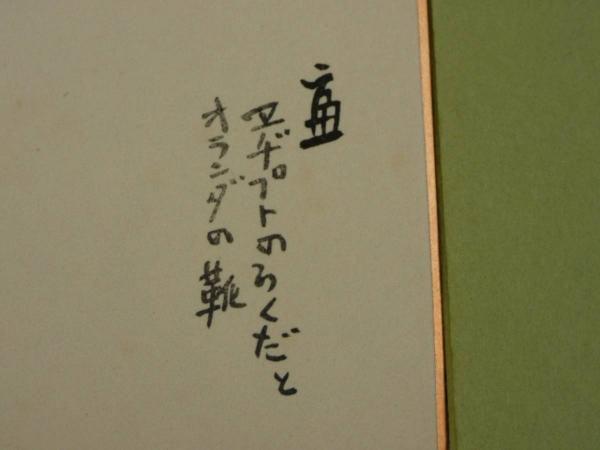 ヱヂプトのらくだと
オランダの靴